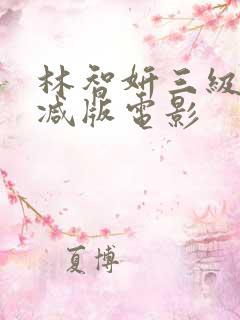 林智妍三級
减版電影
夏博